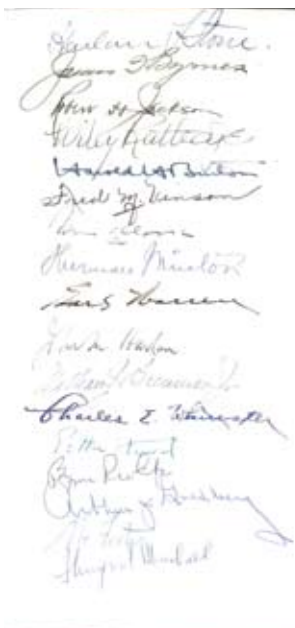 Harlan F. Stone.
James F Byrnes
Robt H. Jackson
Wiley Rutledge
Harold H Burton
Fred M. Vinson
Tom Clark
Sherman Minton
Earl Warren
John M. Harlan
Wm J. Brennan Jr
Charles E. Whittaker
Potter Stewart
Byron White
Arthur J. Goldberg
Abe Fortas
Thurgood Marshall